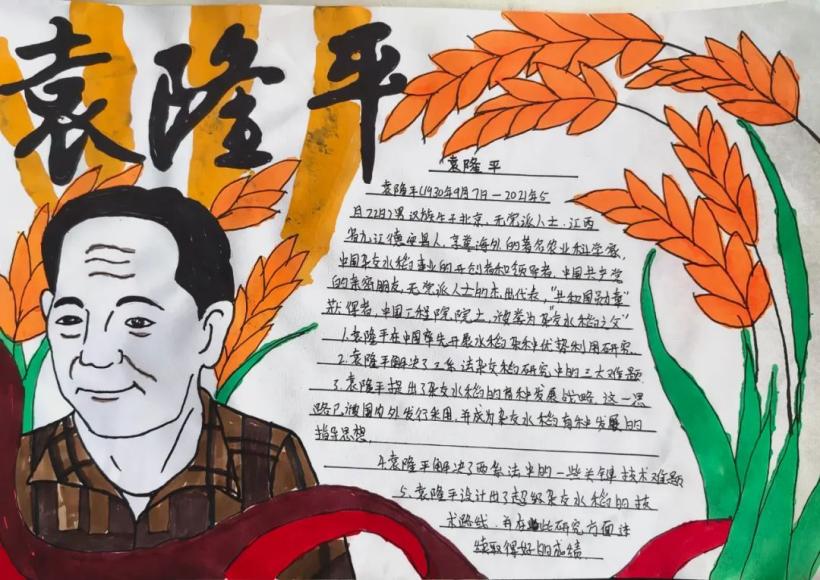 袁隆平
袁隆平
袁隆平(1930年9月7日—2021年5
月22日)男汉族生于北京,无党派人士.江西
省九江德安县人.享誉海外的著名农业科学家,
中国杂交水稻事业的开创者和领导者.中国共产党
的亲密朋友,无党派人士的杰出代表,"共和国勋章"
获得者,中国工程院院士,被誉为"杂交水稻之父"
1.袁隆平在中国率先开展水稻杂种优势利用研究.
2.袁隆平解决了三系法杂交稻研究中的三大难题
3.袁隆平提出了杂交水稻的育种发展战略 这一思
路已被国内外发行采用,并成为杂交水稻育种发展的
指导思想.
4.袁隆平解决了两系法中的一些关键技术难题
5.袁隆平设计出了超级杂交水稻的技
术路线.并在此研究方面
领取得好的成绩